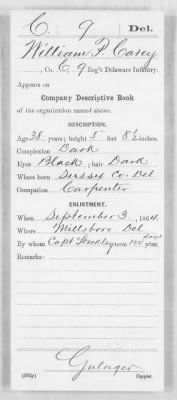 C. 9 Del.
William P. Casey
, Co. C, 9 Reg't Delaware Infantry.
Appears on
Company Descriptive Book
of the organization named above.
DESCRIPTION.
Age 38 years; height 5 feet 8½ inches.
Complexion Dark
Eyes Black; hair Dark
Where born Sussex Co. Del
Occupation Carpenter
ENLISTMENT.
When September 3, 1864.
Where Millsboro Del
By whom Capt term 100 days years.
Remarks:
Copyist.